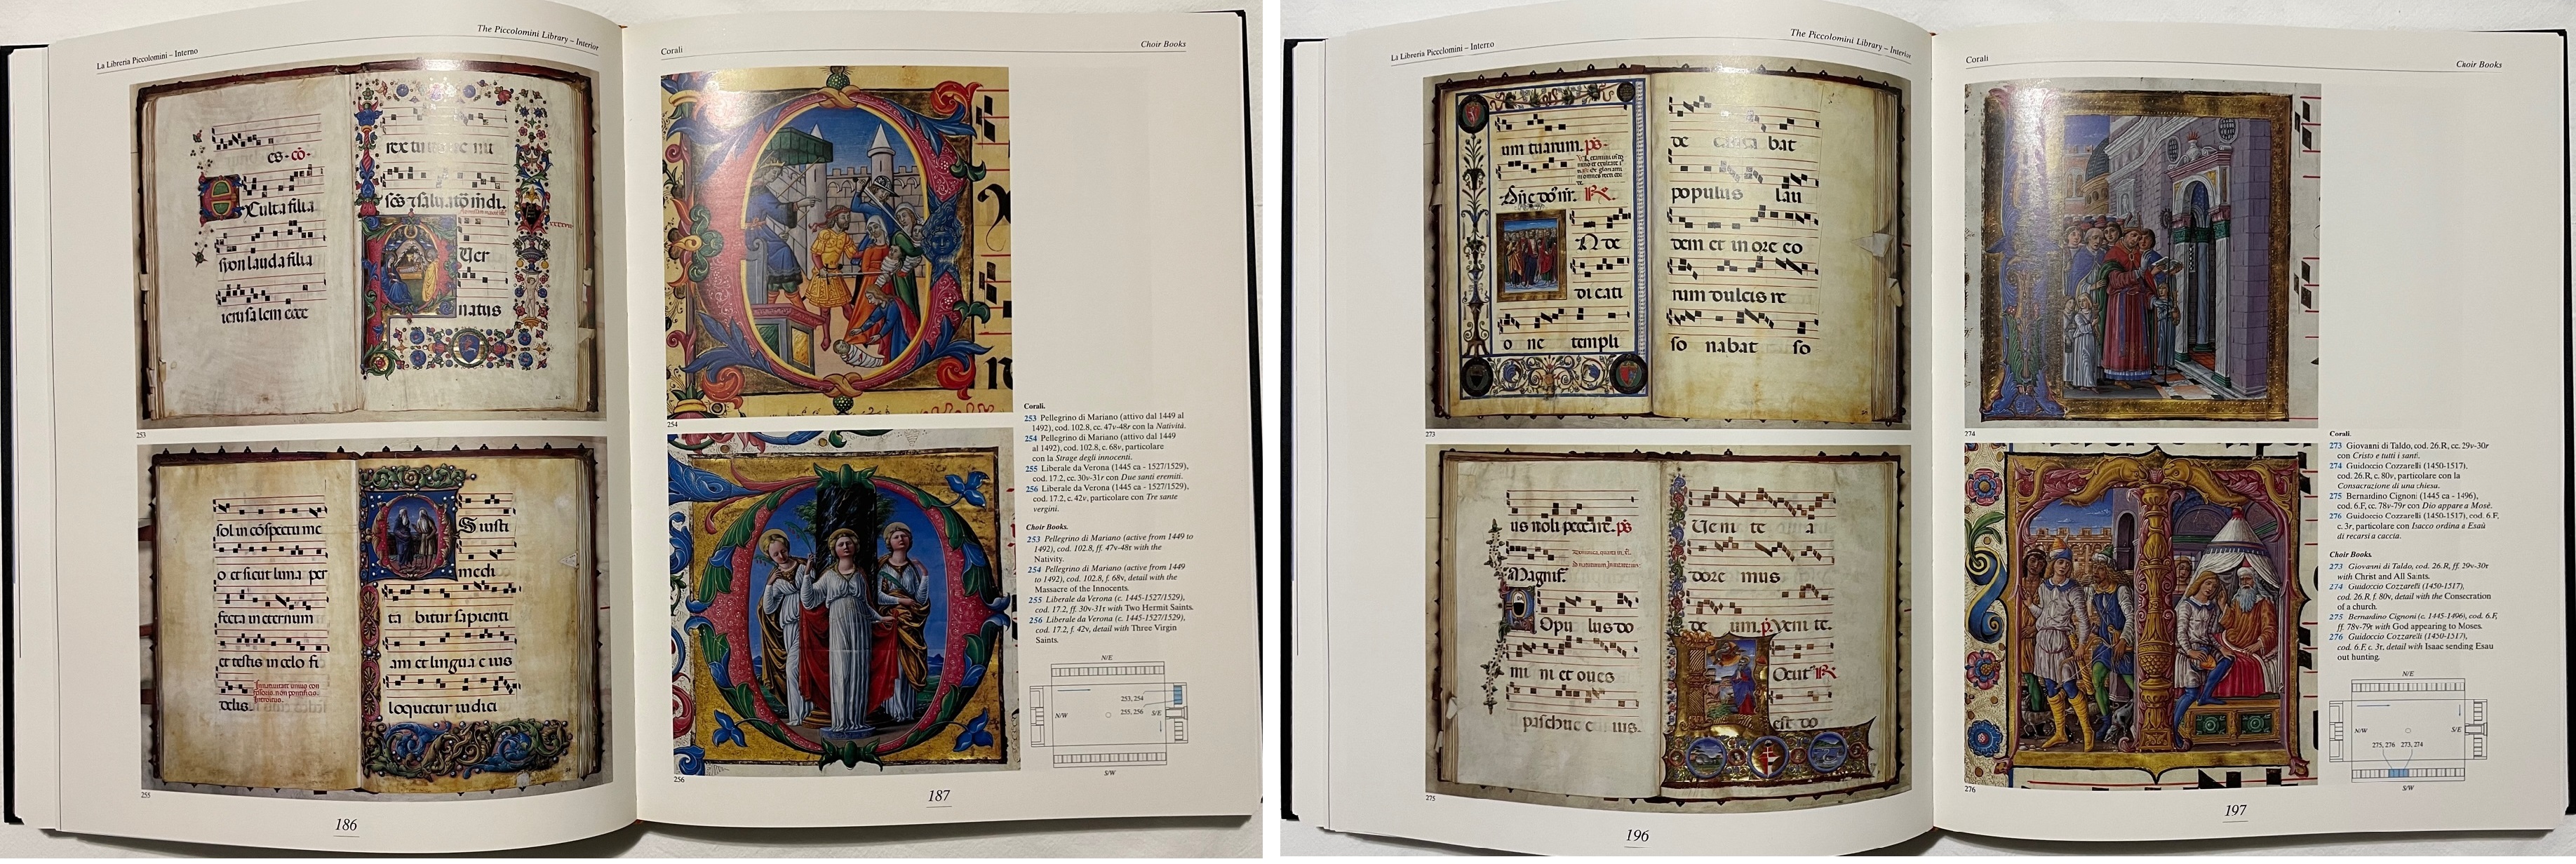 La Libreria Piccolomini – Interno
The Piccolomini Library – Interior
es · cō ·
Xulta filia
syon lauda filia
ierusalem ecce
rex
Uer
natus
253
sol in cōspectu me
o et sicut luna per
fecta in eternum
et testis in celo fi
delis.
S uisti
medi
ta bitur sapienti
am et lingua e ius
loquetur iudici
255
186
Corali
Choir Books
254
256
Corali.
253 Pellegrino di Mariano (attivo dal 1449 al
1492), cod. 102.8, cc. 47v-48r con la Natività.
254 Pellegrino di Mariano (attivo dal 1449
al 1492), cod. 102.8, c. 68v, particolare
con la Strage degli innocenti.
255 Liberale da Verona (1445 ca - 1527/1529),
cod. 17.2, cc. 30v-31r con Due santi eremiti.
256 Liberale da Verona (1445 ca - 1527/1529),
cod. 17.2, c. 42v, particolare con Tre sante
vergini.
Choir Books.
253 Pellegrino di Mariano (active from 1449 to
1492), cod. 102.8, ff. 47v-48r with the
Nativity.
254 Pellegrino di Mariano (active from 1449
to 1492), cod. 102.8, f. 68v, detail with the
Massacre of the Innocents.
255 Liberale da Verona (c. 1445-1527/1529),
cod. 17.2, ff. 30v-31r with Two Hermit Saints.
256 Liberale da Verona (c. 1445-1527/1529),
cod. 17.2, f. 42v, detail with Three Virgin
Saints.
N/E
253, 254
N/W
255, 256
S/E
S/W
187
La Libreria Piccolomini – Interno
The Piccolomini Library – Interior
um tuarum. ps.
N de
di cati
o ne templi
de can ta bat
populus lau
dem et in ore eo
rum dulcis re
so nabat so
273
us noli peccare. ps
Magnif.
Opu lus do
mi ni et oues
pascue e ius.
Ueni te a
dore mus
de um. p Veni te.
est do
275
196
Corali
Choir Books
274
276
Corali.
273 Giovanni di Taldo, cod. 26.R, cc. 29v-30r
con Cristo e tutti i santi.
274 Guidoccio Cozzarelli (1450-1517),
cod. 26.R, c. 80v, particolare con la
Consacrazione di una chiesa.
275 Bernardino Cignoni (1445 ca - 1496),
cod. 6.F, cc. 78v-79r con Dio appare a Mosè.
276 Guidoccio Cozzarelli (1450-1517), cod. 6.F,
c. 3r, particolare con Isacco ordina a Esaù
di recarsi a caccia.
Choir Books.
273 Giovanni di Taldo, cod. 26.R, ff. 29v-30r
with Christ and All Saints.
274 Guidoccio Cozzarelli (1450-1517),
cod. 26.R, f. 80v, detail with the Consecration
of a church.
275 Bernardino Cignoni (c. 1445-1496), cod. 6.F,
ff. 78v-79r with God appearing to Moses.
276 Guidoccio Cozzarelli (1450-1517),
cod. 6.F, c. 3r, detail with Isaac sending Esau
out hunting.
N/E
N/W
S/E
275, 276 273, 274
S/W
197